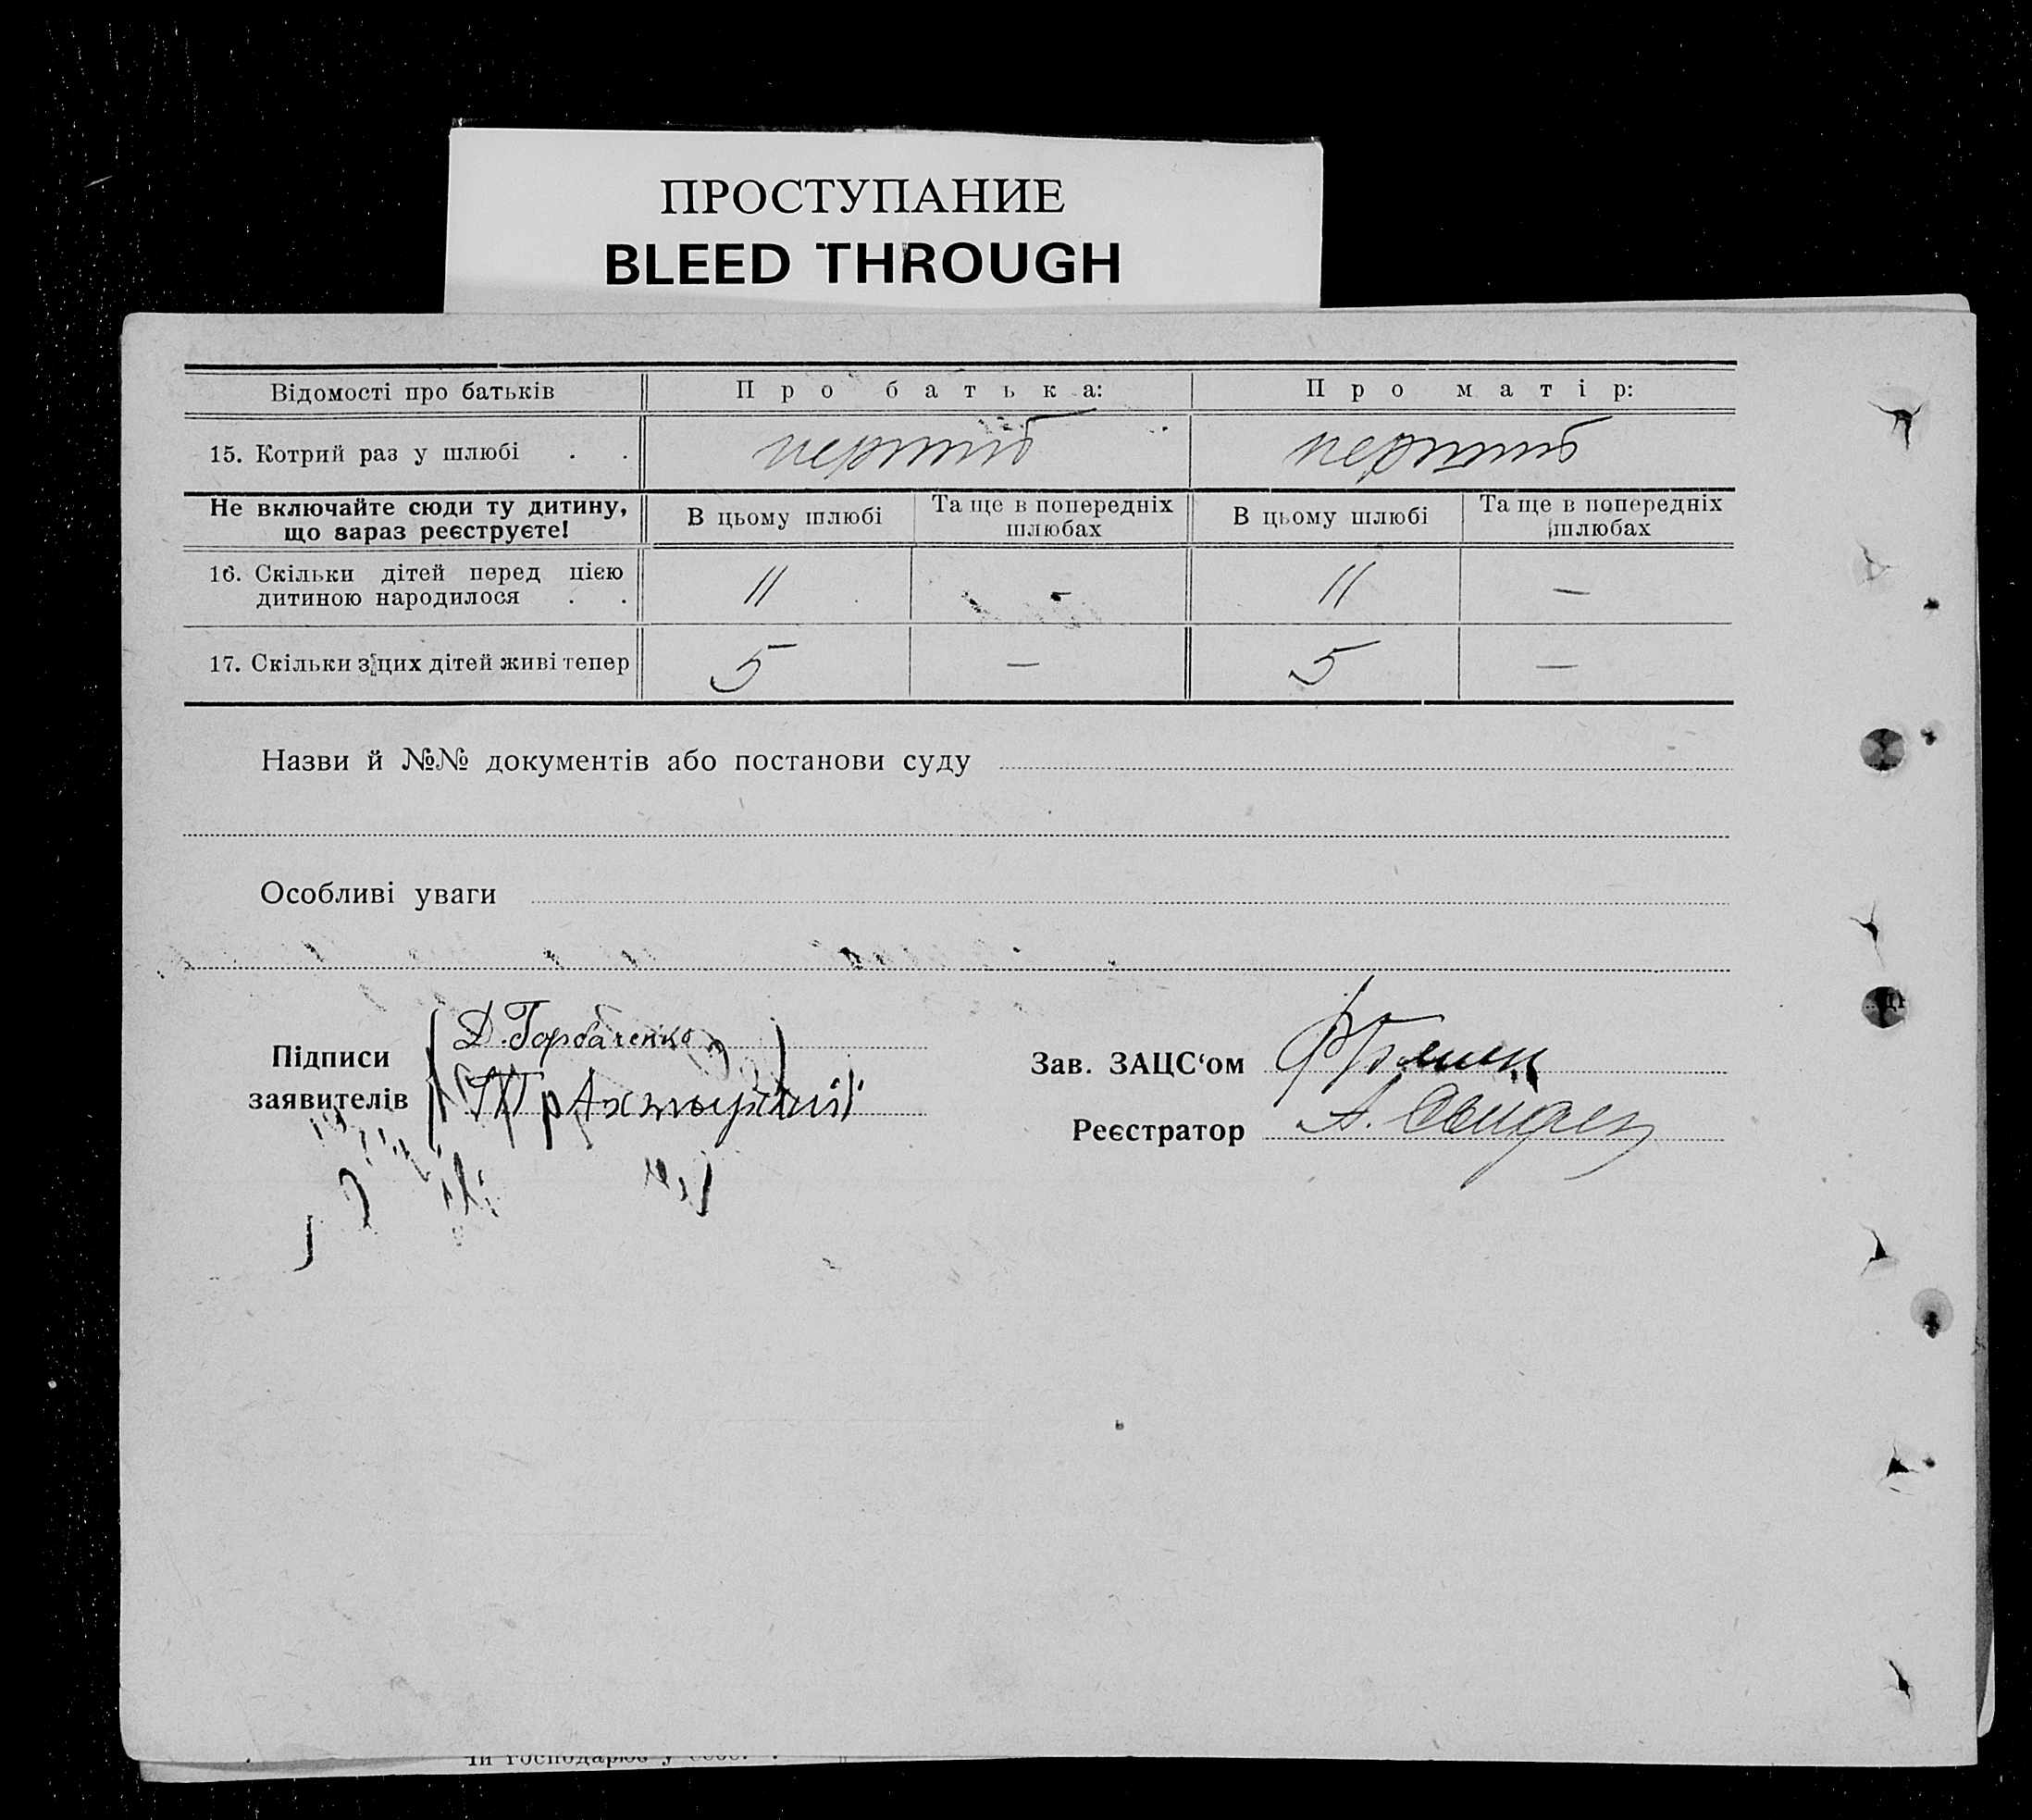 ПРОСТУПАНИЕ
BLEED THROUGH
Відомості про батьків Про батька: Про матір:
15. Котрий раз у шлюбі . . перший перший
Не включайте сюди ту дитину, що зараз реєструєте! В цьому шлюбі Та ще в попередніх шлюбах В цьому шлюбі Та ще в попередніх шлюбах
16. Скільки дітей перед цією
дитиною народилося . . 11 - 11 —
17. Скільки з цих дітей живі тепер 5 — 5 —
Назви й №№ документів або постанови суду
Особливі уваги
Підписи
заявителів
Д. Горбаченко
Зав. ЗАЦС‘ом
Реєстратор А.
Чи господарює у